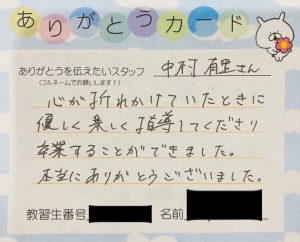 ありがとうカード
ありがとうを伝えたいスタッフ
(フルネームでお願いします!)
中村有里さん
心が折れかけていたときに
優しく楽しく指導してくださり
卒業することができました。
本当にありがとうございました。
教習生番号
名前